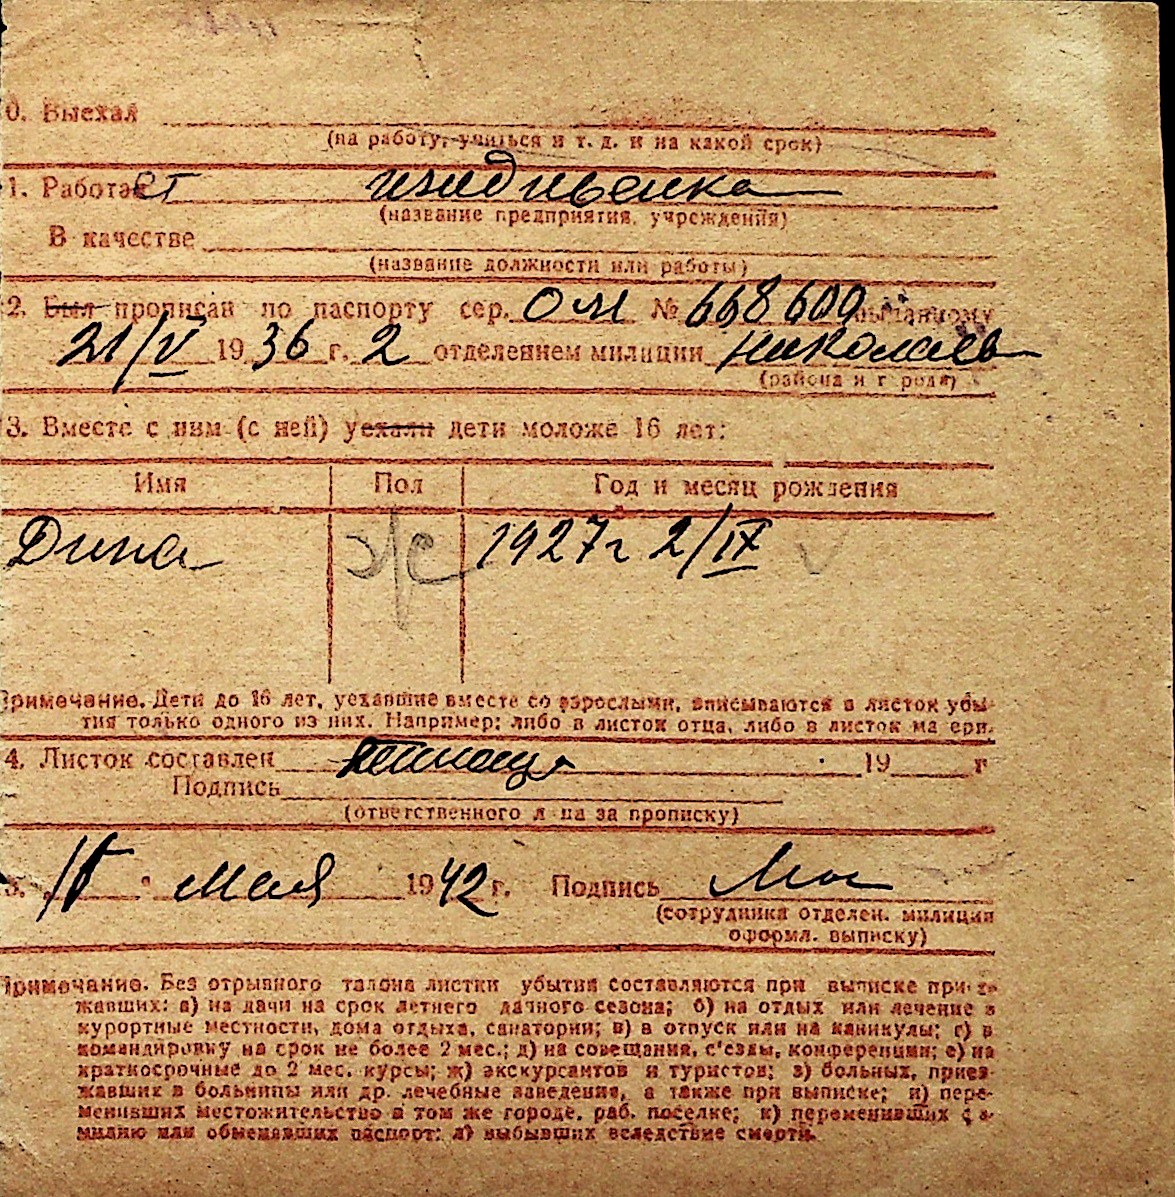 0. Выехал
(на работу, учиться и т. д. и на какой срок)
1. Работает иждивенка
(название предприятия, учреждения)
В качестве
(название должности или работы)
2. Был прописан по паспорту сер. ОЧ № 668600 выданному
21/V 1936 г. 2 отделением милиции Николаев
(района и г рода)
3. Вместе с ним (с ней) уехали дети моложе 16 лет:
Имя Пол Год и месяц рождения
Дина ж 1927 г 2/IX
Примечание. Дети до 16 лет, уехавшие вместе со взрослыми, вписываются в листок убы-
тия только одного из них. Например: либо в листок отца, либо в листок ма ери.
4. Листок составлен 19 г
Подпись
(ответственного л ца за прописку)
5. " мая 1942 г. Подпись
(сотрудника отделен. милиции
оформл. выписку)
Примечание. Без отрывного талона листки убытия составляются при выписке при- з-
жавших: а) на дачи на срок летнего дачного сезона; б) на отдых или лечение в
курортные местности, дома отдыха, санатории; в) в отпуск или на каникулы; г) в
командировку на срок не более 2 мес.; д) на совещания, с'езды, конференции; е) на
краткосрочные до 2 мес. курсы; ж) экскурсантов и туристов; з) больных, приез-
жавших в больницы или др. лечебные заведения, а также при выписке; и) пере-
менивших местожительство в том же городе, раб. поселке; к) переменивших ф а-
милию или обменявших паспорт; л) выбывших вследствие смерти.